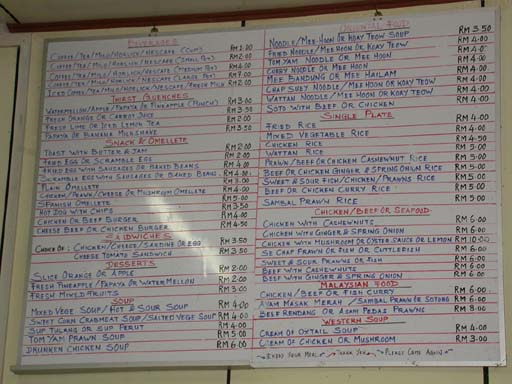 BEVERAGES
COFFEE/TEA/MILO/HORLICK/NESCAFE (CUP) RM 2.00
COFFEE/TEA/MILO/HORLICK/NESCAFE (SMALL POT)
COFFEE/TEA/MILO/HORLICK/NESCAFE (MEDIUM POT)
COFFEE/TEA/MILO/HORLICK/NESCAFE (LARGE POT)
ICED COFFEE/TEA/MILO/HORLICK/NESCAFE/FRESH MILK
THIRST QUENCHES
WATERMELLON/APPLE/PAPAYA OR PINEAPPLE (PUNCH) RM 3.00
FRESH ORANGE OR CARROT JUICE RM 3.50
FRESH LIME OR ICED LEMON TEA RM 2.00
PAPAYA OR BANANA MILKSHAKE RM 3.50
SNACK & OMELETTE
TOAST WITH BUTTER & JAM RM 2.00
FRIED EGG OR SCRAMBLE EGG RM 2.00
FRIED EGG WITH SAUSAGES OR BAKED BEANS RM 4.00
SCRAMBLE EGG WITH SAUSAGES OR BAKED BEANS RM 4.00
PLAIN OMELETTE RM 3.00
CHICKEN/PRAWN/CHEESE OR MUSHROOM OMELETTE RM 4.50
SPANISH OMELETTE RM 4.50
HOT DOG WITH CHIPS RM 3.50
CHICKEN OR BEEF BURGER RM 4.00
CHEESE BEEF OR CHICKEN BURGER RM 4.50
SANDWICHES
CHOICE OF: CHICKEN/CHEESE/SARDINE OR EGG RM 3.50
CHEESE TOMATO SANDWICH RM 3.50
DESSERTS
SLICE ORANGE OR APPLE RM 2.00
FRESH PINEAPPLE/PAPAYA OR WATER MELLON RM 2.00
FRESH MIXED FRUITS RM 3.00
SOUP
MIXED VEGE SOUP/HOT & SOUR SOUP RM 4.00
SWEET CORN CRABMEAT SOUP/SALTED VEGE SOUP RM 4.00
SUP TULANG OR SUP PERUT RM 4.00
TOM YAM PRAWN SOUP RM 5.00
DRUNKEN CHICKEN SOUP RM 6.00
ORIENTAL FOOD
NOODLE/MEE-HOON OR KOAY TEOW SOUP RM 3.50
FRIED NOODLE/MEE HOON OR KOAY TEOW RM 4.00
TOM YAM NOODLE OR MEE HOON RM 4.00
CURRY NOODLE OR MEE HOON RM 4.00
MEE BANDUNG OR MEE HAILAM RM 4.00
CHAP SUEY NOODLE/MEE HOON OR KOAY TEOW RM 4.00
WATTAN NOODLE/MEE HOON OR KOAY TEOW RM 4.00
SOTO WITH BEEF OR CHICKEN RM 4.00
SINGLE PLATE
FRIED RICE RM 4.00
MIXED VEGETABLE RICE RM 4.00
CHICKEN RICE RM 4.50
WATTAN RICE RM 5.00
PRAWN/BEEF OR CHICKEN CASHEWNUT RICE RM 5.00
BEEF OR CHICKEN GINGER & SPRING ONION RICE RM 5.00
SWEET & SOUR FISH/CHICKEN/PRAWNS RICE RM 5.00
BEEF OR CHICKEN CURRY RICE RM 5.00
SAMBAL PRAWN RICE RM 5.00
CHICKEN/BEEF OR SEAFOOD
CHICKEN WITH CASHEWNUTS RM 6.00
CHICKEN WITH GINGER & SPRING ONION RM 6.00
CHICKEN WITH MUSHROOM OR OYSTER SAUCE OR LEMON RM 10.00
SE CHAP PRAWN OR FISH OR CUTTLEFISH RM 6.00
SWEET & SOUR PRAWNS OR FISH RM 6.00
BEEF WITH CASHEWNUTS RM 6.00
BEEF WITH GINGER & SPRING ONION RM 6.00
MALAYSIAN FOOD
CHICKEN/BEEF OR FISH CURRY RM 6.00
AYAM MASAK MERAH/SAMBAL PRAWN OR SOTONG RM 6.00
BEEF RENDANG OR ASAM PEDAS PRAWNS RM 3.00
WESTERN SOUP
CREAM OF OXTAIL SOUP RM 4.00
CREAM OF CHICKEN OR MUSHROOM RM 3.00
ENJOY YOUR MEAL THANK YOU PLEASE COME AGAIN